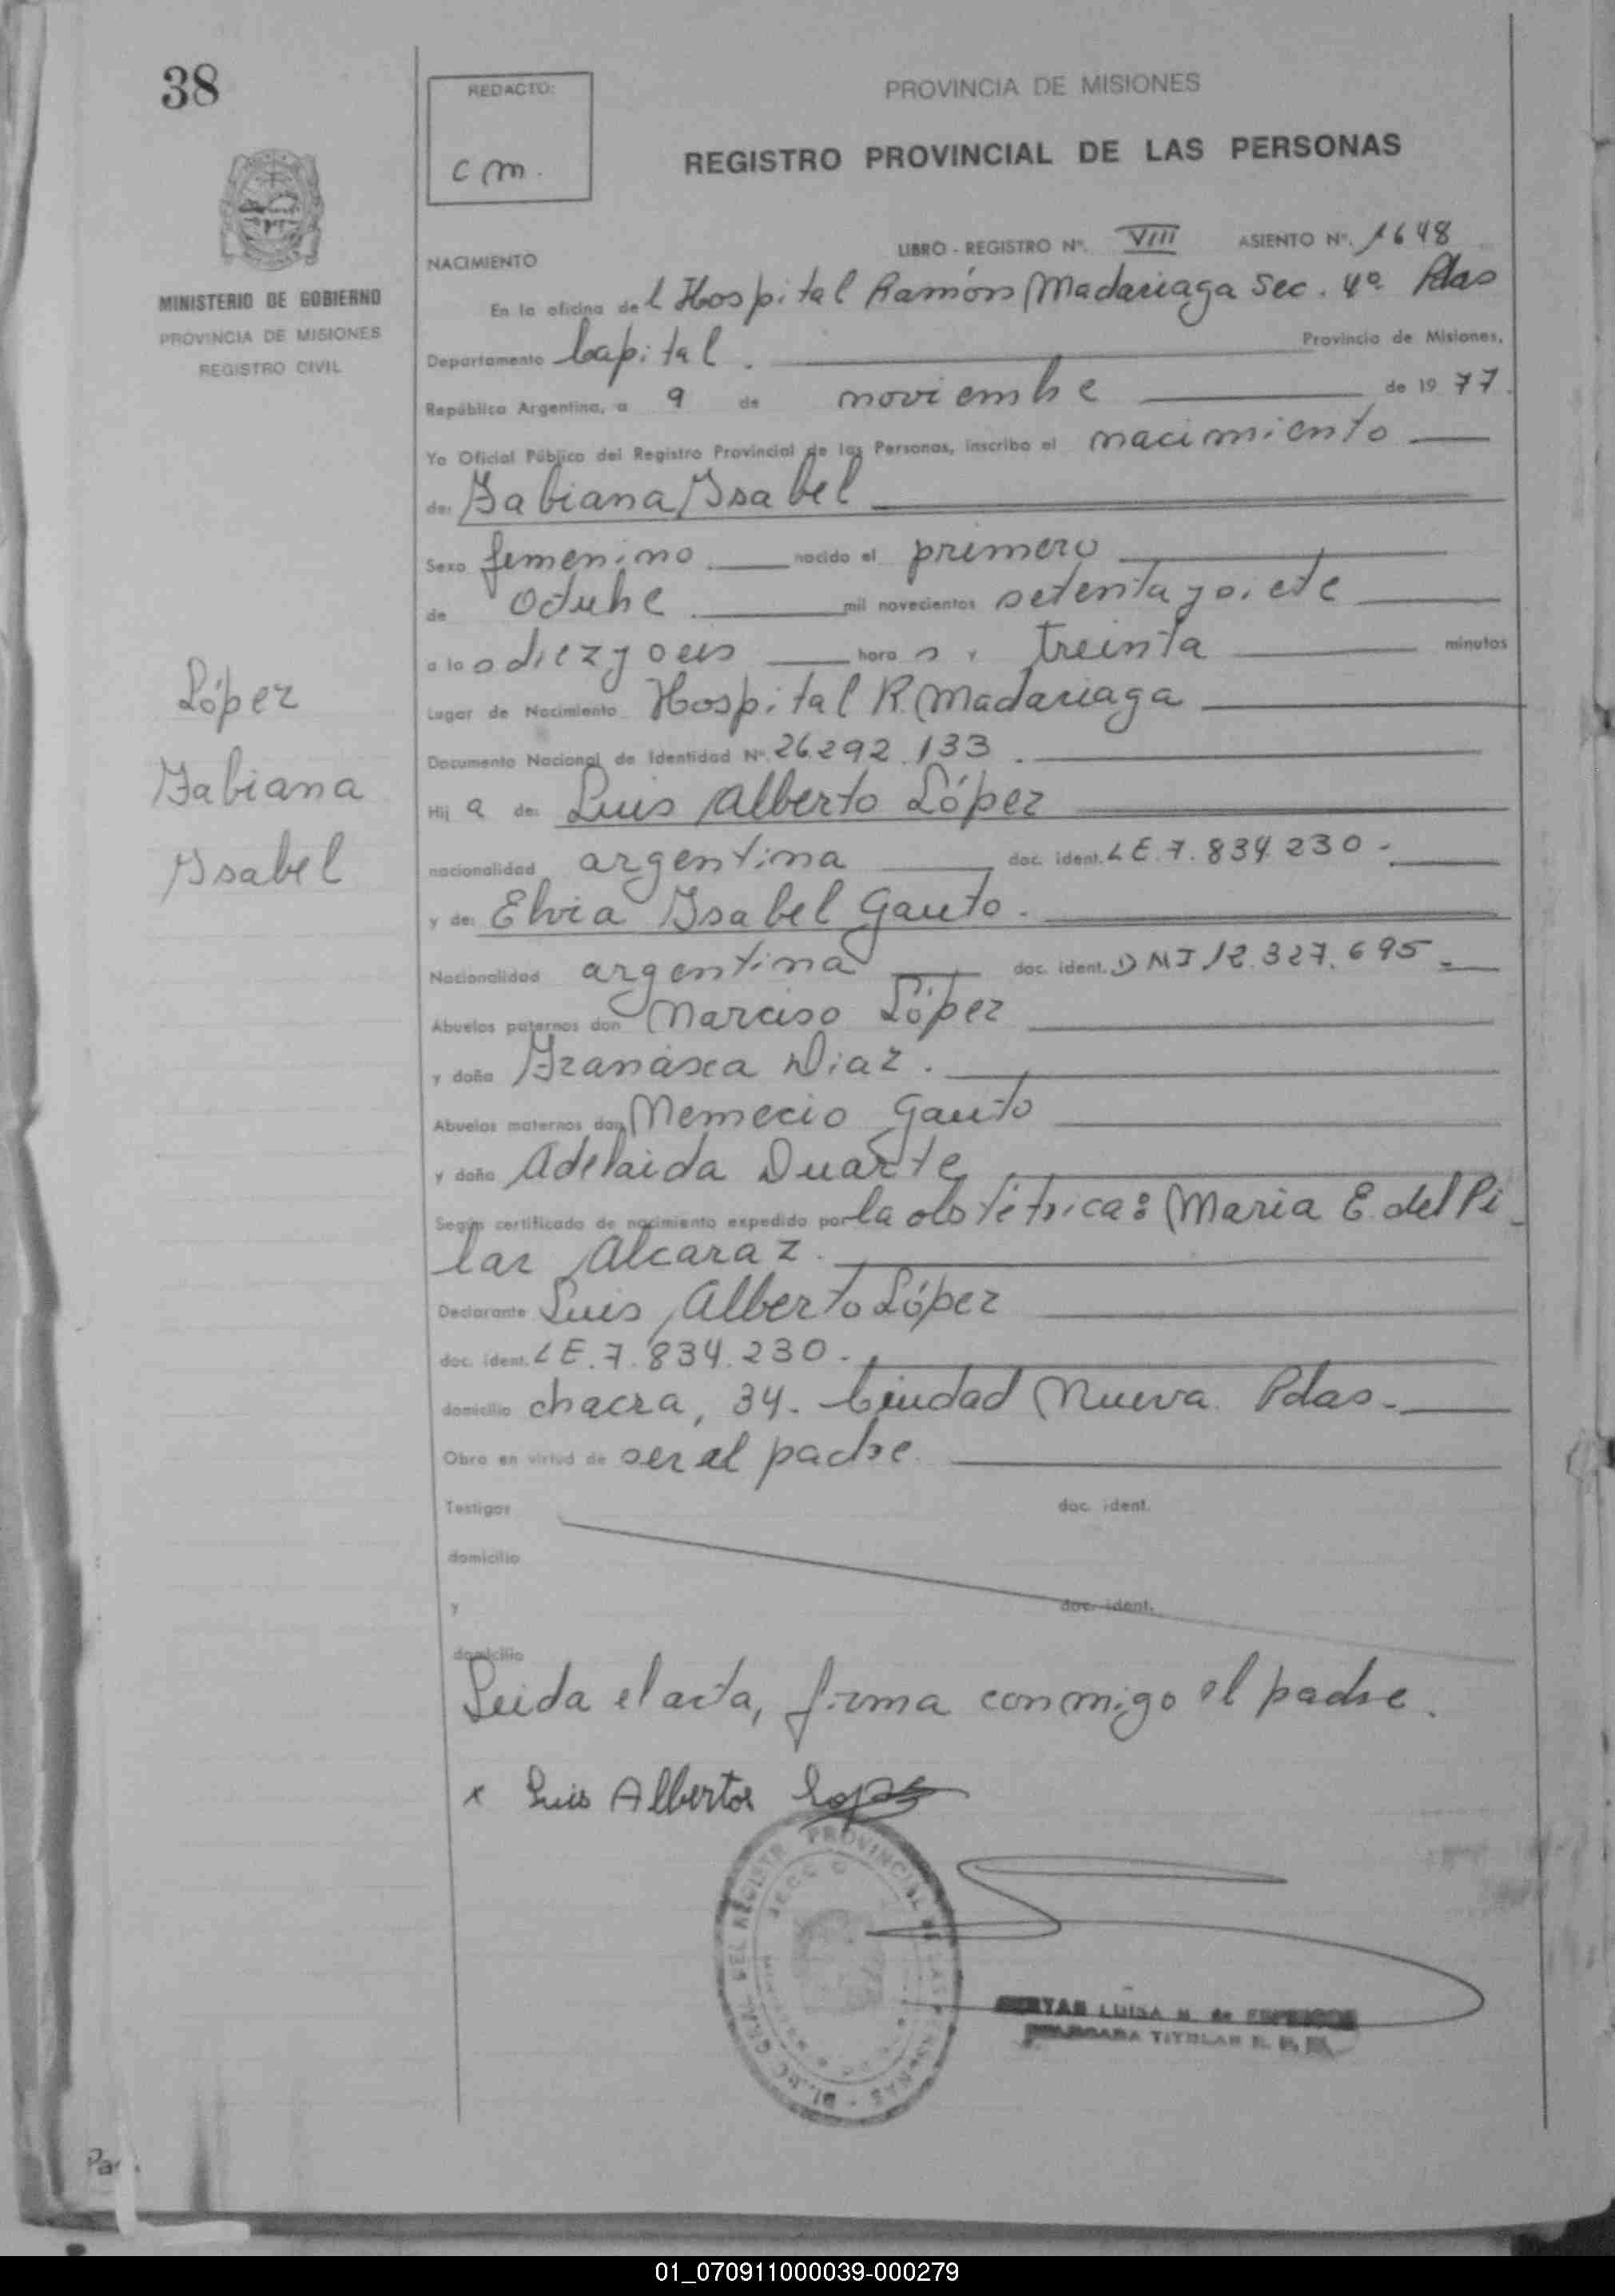 38
REDACTO:
c m.
PROVINCIA DE MISIONES
REGISTRO PROVINCIAL DE LAS PERSONAS
LIBRO - REGISTRO Nº. VIII ASIENTO Nº. 1648
NACIMIENTO
MINISTERIO DE GOBIERNO
PROVINCIA DE MISIONES
REGISTRO CIVIL
En la oficina del Hospital Ramón Madariaga Sec. 4º Pdas
Departamento Capital. Provincia de Misiones,
República Argentina, a 9 de noviembre de 19 77.
Yo Oficial Público del Registro Provincial de las Personas, inscribo el nacimiento
de: Fabiana Ysabel
Sexo femenino nacido el primero
de Octubre mil novecientos setenta y siete
a las diez y seis horas y treinta minutos
Lugar de Nacimiento Hospital R. Madariaga
Documento Nacional de Identidad Nº. 26.292.133.
Hija de: Luis Alberto López
nacionalidad argentina doc. ident. LE.7.834.230-
y de: Elvia Ysabel Gauto.
Nacionalidad argentina doc. ident. DNI 12.327.695.
Abuelos paternos don Narciso López
y doña Diaz.
Abuelos maternos don Nemecio Gauto
y doña Adelaida Duarte
Según certificado de nacimiento expedido por la obstétrica: Maria E. del Pi-
lar Alcaraz.
Declarante Luis Alberto López
doc. ident. LE.7.834.230.
domicilio chacra, 34. Ciudad Nueva. Pdas.
Obra en virtud de ser el padre.
Testigos doc. ident.
domicilio
y doc. ident.
domicilio
Leida el acta, firma conmigo el padre.
x Luis Alberto Lopez
López
Fabiana
Ysabel
PROVINCIAL DE LAS PERSONAS
LUISA M. de
TITULAR
01_070911000039-000279